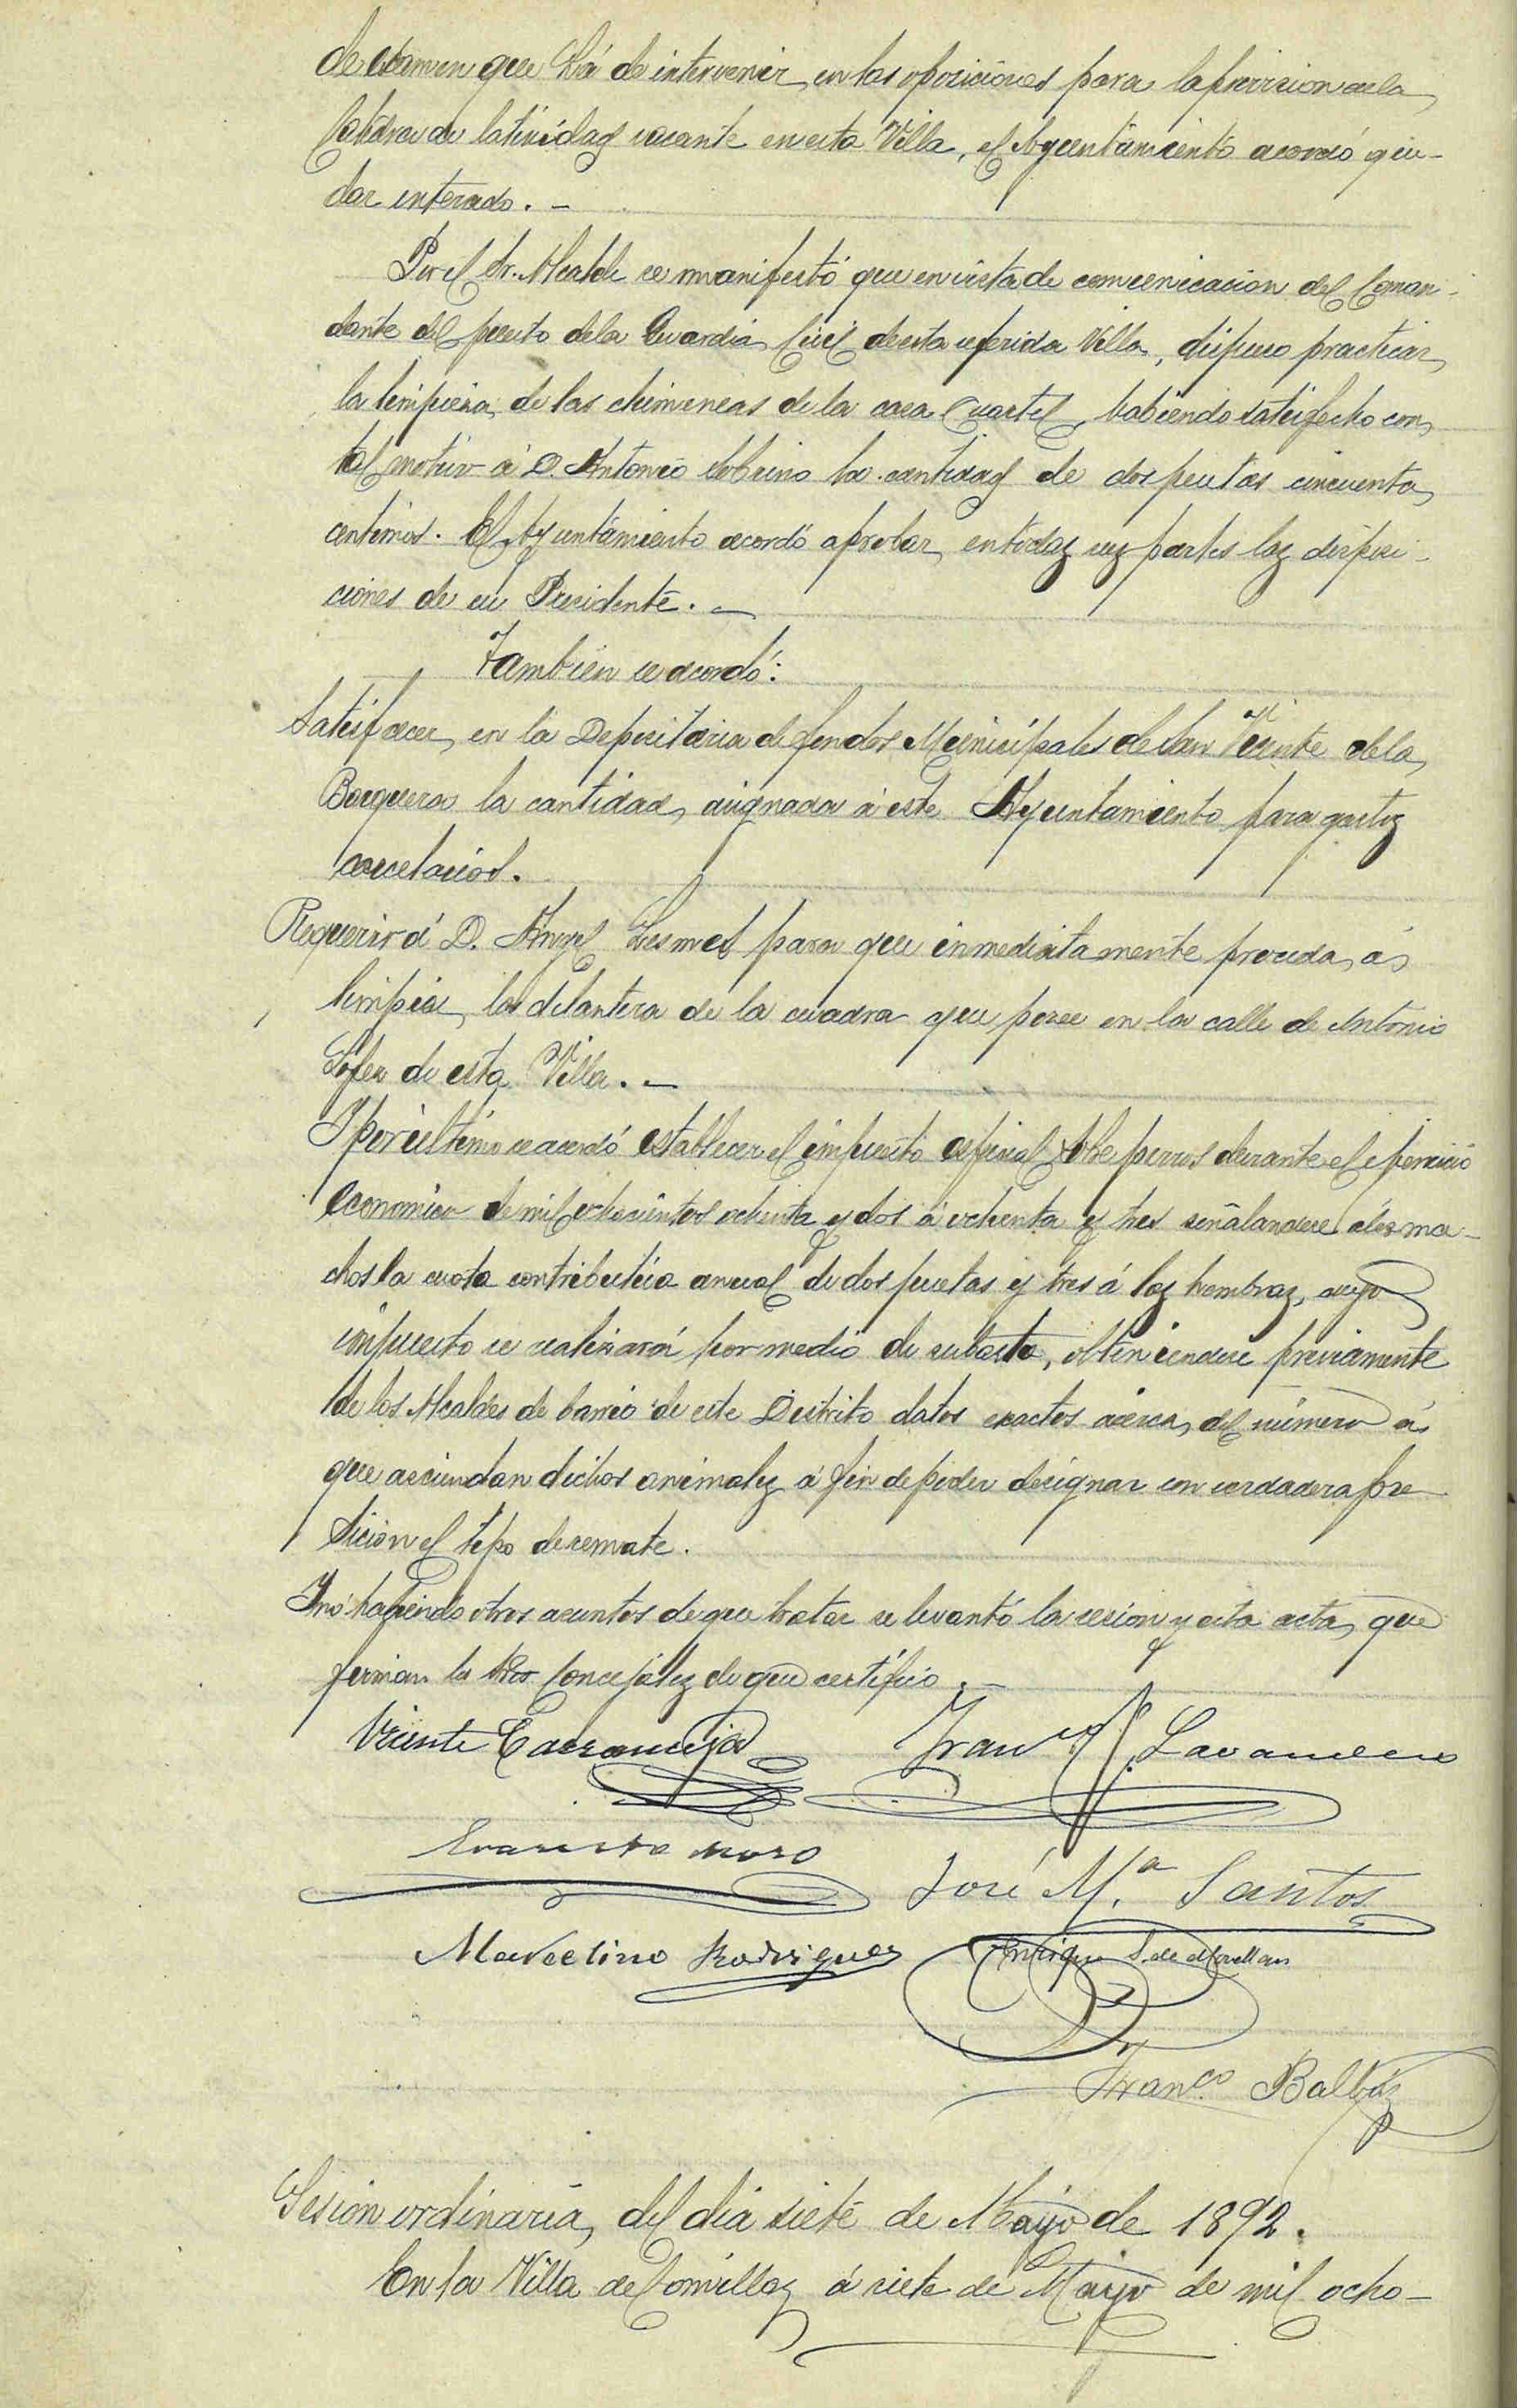 de examen que há de intervenir en las oposiciones para la provision de la
Cátedra de latinidad vacante en esta Villa, el Ayuntamiento acordó que-
dar enterado. -
Por el Sr. Alcalde se manifestó que en vista de comunicacion del Coman-
dante del puesto de la Guardia Civil de esta referida Villa, dispuso practicar
la limpieza de las chimeneas de la casa Cuartel, habiendo satisfecho con
tal motivo á D. Antonio Sobrino la cantidad de dos pesetas cincuenta
centimos. El Ayuntamiento acordó aprobar en todas sus partes las disposi-
ciones de su Presidente. -
Tambien se acordó:
Satisfacer en la Depositaria de fondos Municipales de San Vicente de la
Barquera la cantidad asignada á este Ayuntamiento para gastos
carcelarios.
Requerir á D. Angel Lesmes para que inmediatamente proceda á
limpiar la delantera de la cuadra que posee en la calle de Antonio
López de esta Villa. -
Y por último se acordó establecer el impuesto especial sobre perros durante el ejercicio
economico de mil ochocientos ochenta y dos á ochenta y tres señalandose á los ma-
chos la cuota contributiva anual de dos pesetas y tres á las hembras, cuyo
impuesto se realizará por medio de subasta, obteniendose previamente
de los Alcaldes de barrio de este Distrito datos exactos acerca del número á
que asciendan dichos animales á fin de poder designar con verdadera pre-
cision el tipo de remate.
Y no habiendo otros asuntos de que tratar se levantó la sesion y esta acta, que
firman los Sres Concejales de que certifico. -
Vicente Carranceja Franco J. Lavandero
Evaristo Moro
José M.ª Santos
Marcelino Rodriguez Enrique S. de Movellan
Franco Balbás
Sesion ordinaria del dia siete de Mayo de 1892.
En la Villa de Comillas á siete de Mayo de mil ocho-